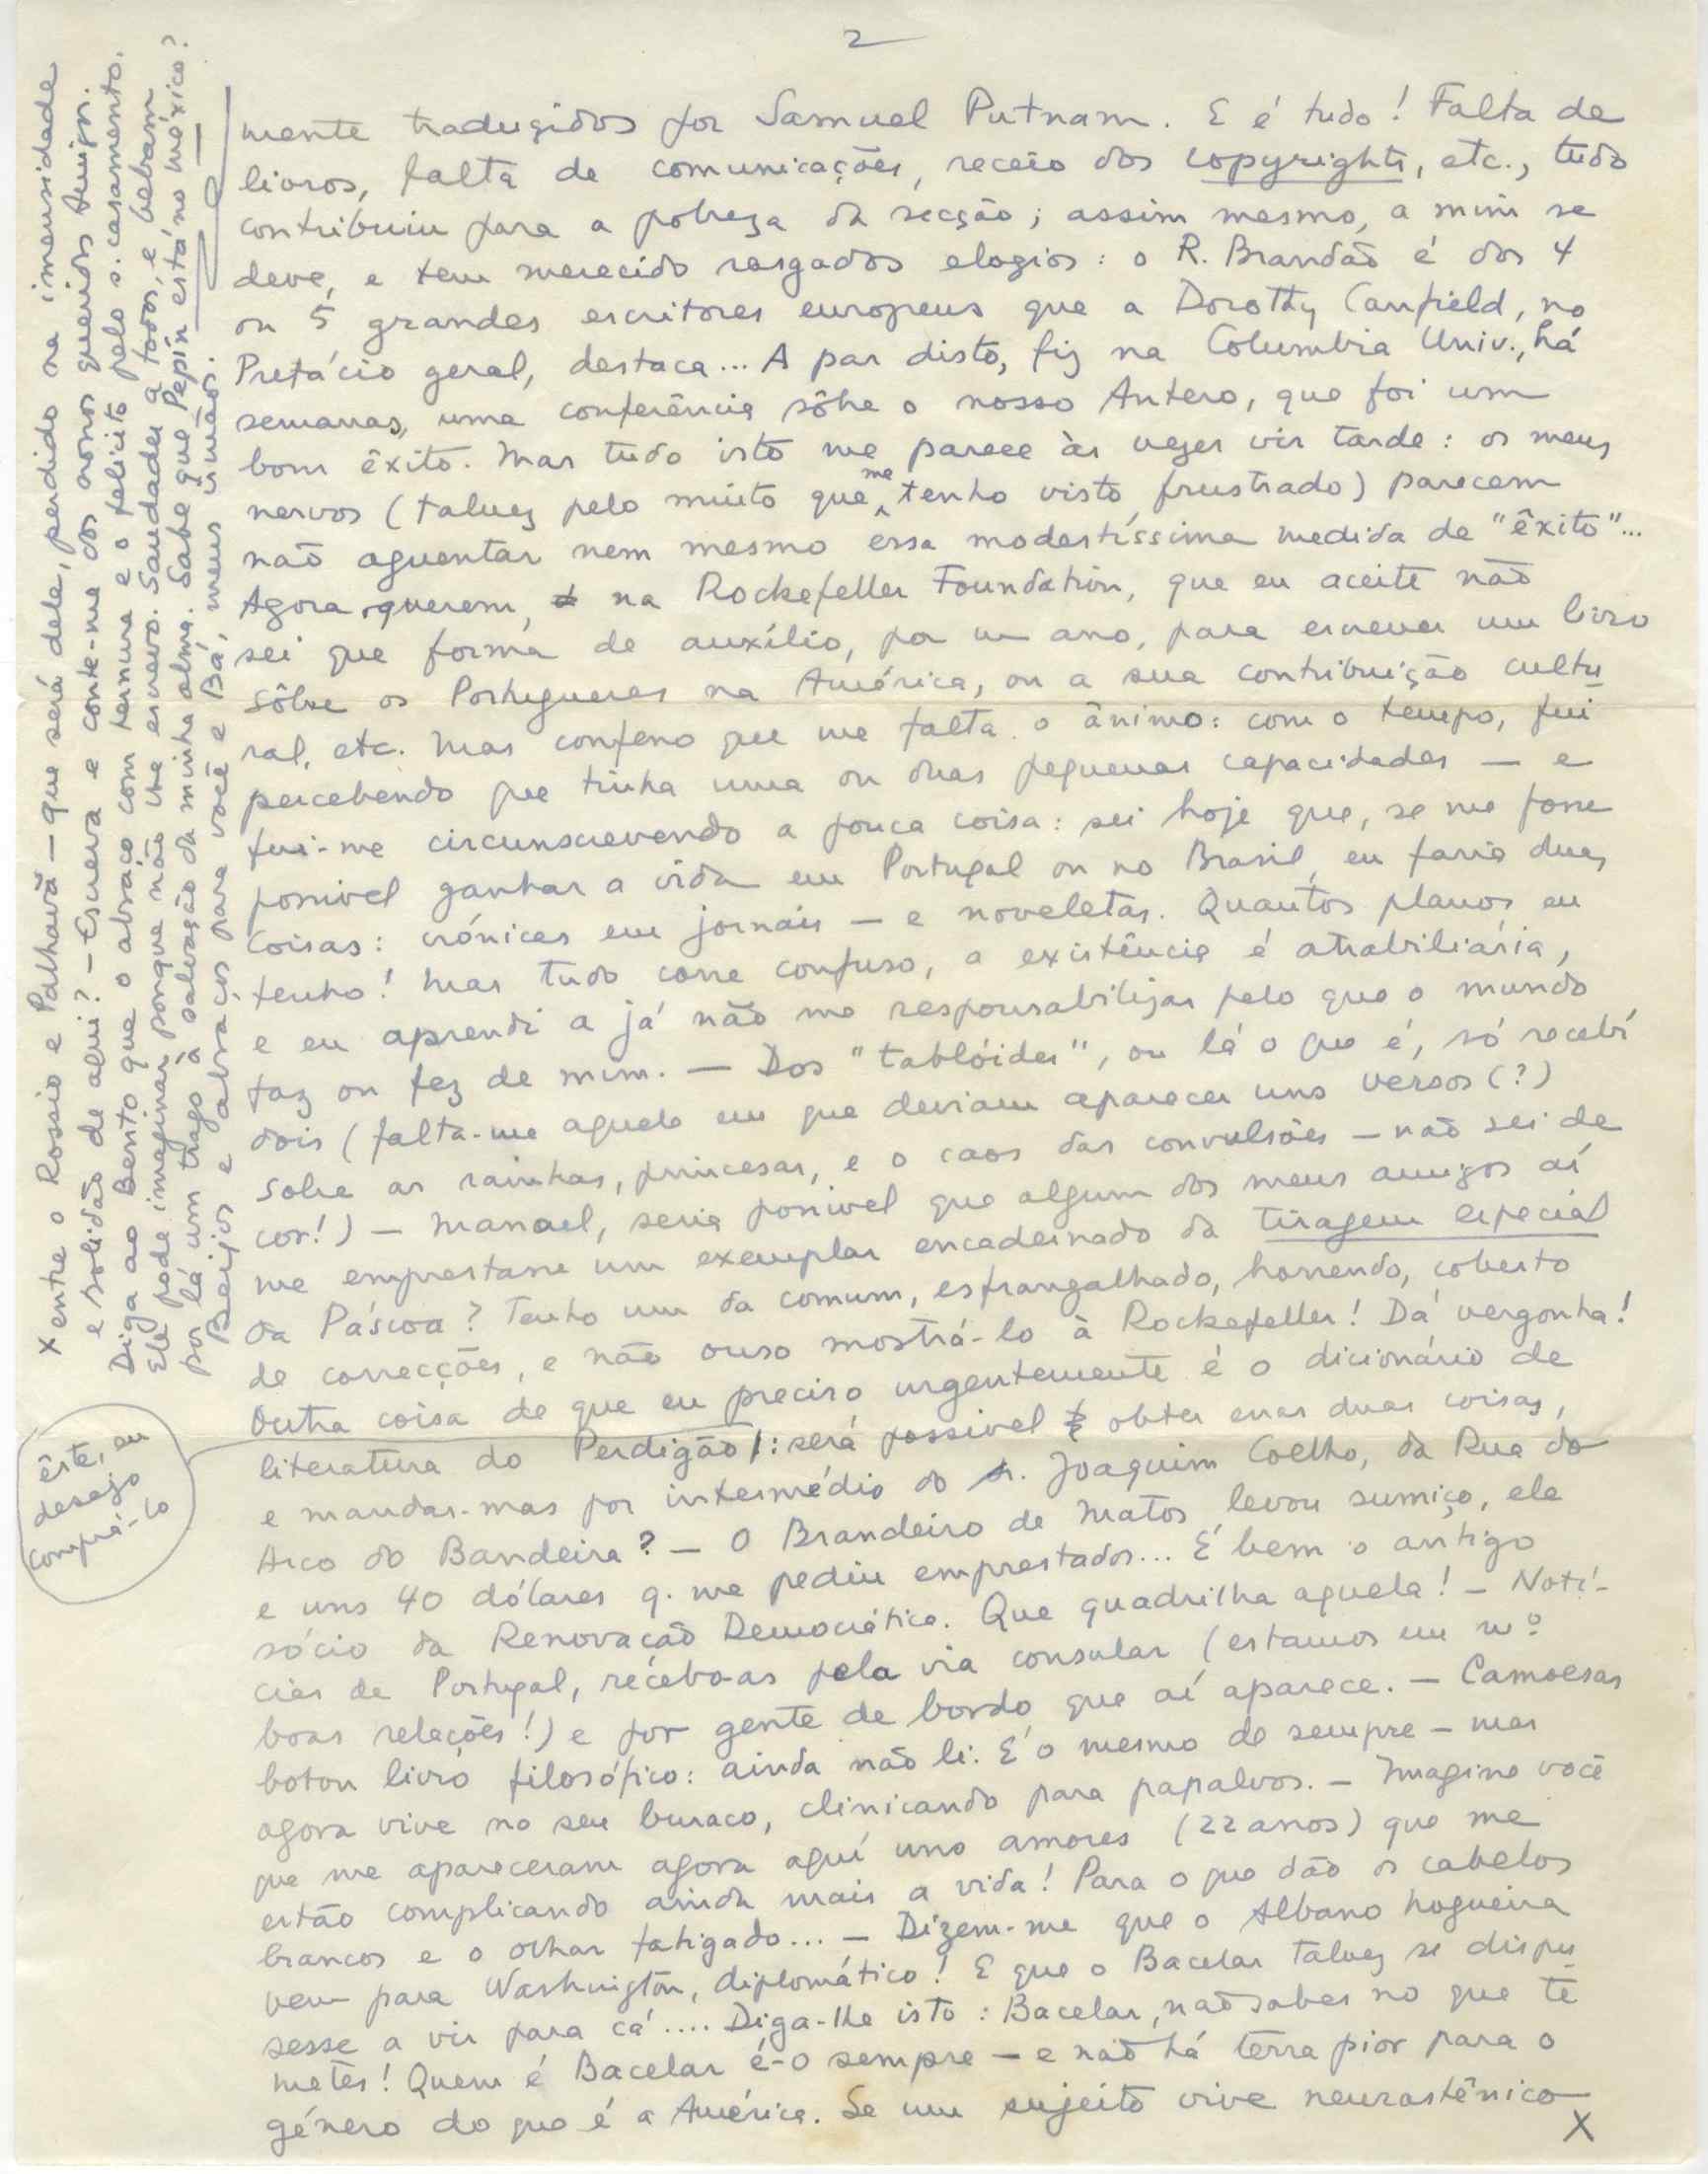 2
mente traduzidos por Samuel Putnam. E é tudo! Falta de
livros, falta de comunicações, receio dos copyrights, etc., tudo
contribuiu para a pobreza da secção; assim mesmo, a mim se
deve, e tem merecido rasgados elogios: o R. Brandão é dos 4
ou 5 grandes escritores europeus que a Dorothy Canfield, no
Prefácio geral, destaca... A par disto, fiz na Columbia Univ., há
semanas, uma conferência sôbre o nosso Antero, que foi um
bom êxito. Mas tudo isto me parece às vezes vir tarde: os meus
nervos (talvez pelo muito que me tenho visto frustrado) parecem
não aguentar nem mesmo essa modestíssima medida de "êxito"...
Agora querem, na Rockefeller Foundation, que eu aceite não
sei que forma de auxílio, por um ano, para escrever um livro
sôbre os Portugueses na América, ou a sua contribuição cultu-
ral, etc. Mas confesso que me falta o ânimo: com o tempo, fui
percebendo que tinha uma ou duas pequenas capacidades — e
fui-me circunscrevendo a pouca coisa: sei hoje que, se me fosse
possivel ganhar a vida em Portugal ou no Brasil, eu faria duas
coisas: crónicas em jornais — e noveletas. Quantos planos eu
tenho! Mas tudo corre confuso, a existência é atrabiliária,
e eu aprendi a já não me responsabilizar pelo que o mundo
faz ou fez de mim. — Dos "tablóides", ou lá o que é, só recebí
dois (falta-me aquele em que deviam aparecer uns versos (?)
sobre as rainhas, princesas, e o caos das convulsões — não sei de
cor!) — Manuel, seria possivel que algum dos meus amigos aí
me emprestasse um exemplar encadernado da tiragem especial
da Páscoa? Tenho um da comum, esfrangalhado, horrendo, coberto
de correcções, e não ouso mostrá-lo à Rockefeller! Dá vergonha!
Outra coisa de que eu preciso urgentemente é o dicionário de
literatura do Perdigão: será possivel obter essas duas coisas,
e mandar-mas por intermédio do sr. Joaquim Coelho, da Rua do
Arco do Bandeira? — O Brandeiro de Matos levou sumiço, ele
e uns 40 dólares q. me pediu emprestados... É bem o antigo
sócio da Renovação Democrática. Que quadrilha aquela! — Notí-
cias de Portugal, recebo-as pela via consular (estamos em mº
boas relações!) e por gente de bordo que aí aparece. — Camoesas
botou livro filosófico: ainda não li. É o mesmo de sempre — mas
agora vive no seu buraco, clinicando para papalvos. — Imagine você
que me apareceram agora aquí uns amores (22 anos) que me
estão complicando ainda mais a vida! Para o que dão os cabelos
brancos e o olhar fatigado... — Dizem-me que o Albano Nogueira
vem para Washington, diplomático! E que o Bacelar talvez se dispu-
sesse a vir para cá.... Diga-lhe isto: Bacelar, não sabes no que te
metes! Quem é Bacelar é-o sempre — e não há terra pior para o
género do que é a América. Se um sujeito vive neurasténico
X
êste, eu
desejo
comprá-lo
X entre o Rossio e Palhavã — que será dele, perdido na imensidade
e solidão de aqui? — Escreva e conte-me dos nossos queridos Amigos.
Diga ao Bento que o abraço com ternura e o felicito pelo s. casamento.
Ele pode imaginar porque não lhe escrevo. Saudades a todos, e bebam
por lá um trago à salvação da minha alma. Sabe que Pepín está no México?
Beijos e abraços para você e Bá, meus irmãos.